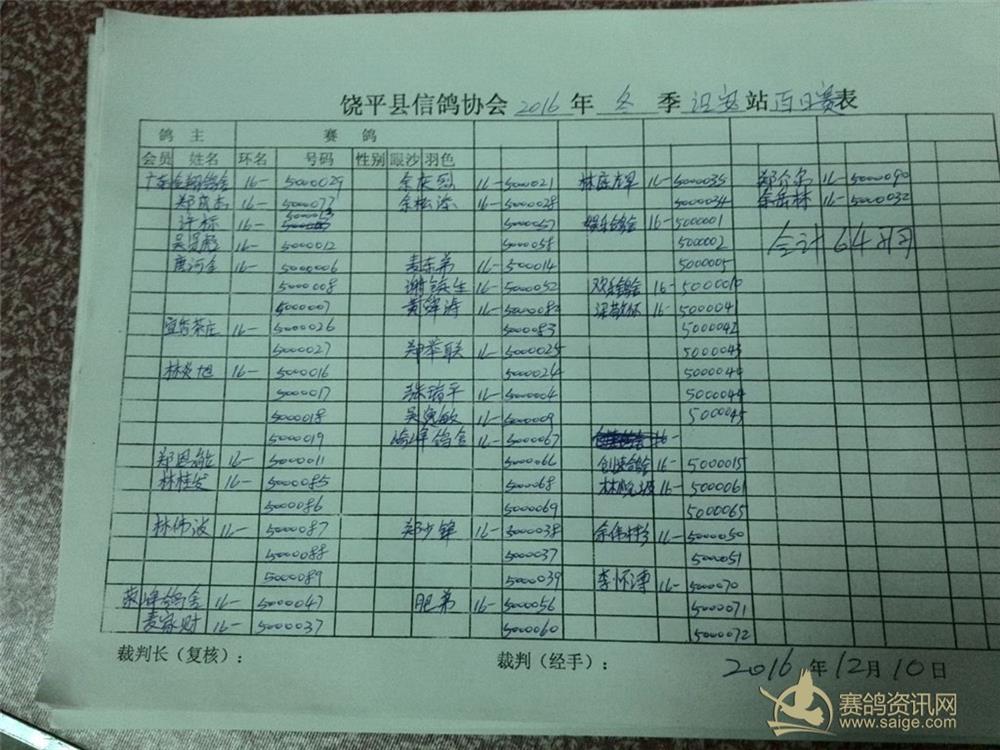 饶平县信鸽协会 2016 年 冬 季 站 百日赛表
鸽 主 赛 鸽
会员 姓名 环名 号码 性别 眼沙 羽色
16- 5000029 余庆烈 16- 5000021 16- 5000035 16- 5000090
16- 5000073 余松添 16- 5000028 5000034 余岳林 16- 5000032
许标 16- 5000013 5000057 娱乐鸽舍 16- 5000001
16- 5000012 5000058 5000002 合计 64羽
唐河全 16- 5000006 麦东弟 16- 5000014 5000005
5000008 16- 5000052 16- 5000010
5000007 黄 涛 16- 5000082 16- 500004
茶庄 16- 5000026 5000083 5000042
5000027 郑举联 16- 5000025 5000043
林炎旭 16- 5000016 5000024 5000044
5000017 张瑞平 16- 500004 5000044
5000018 敏 16- 5000009 5000045
5000019 峰鸽舍 16- 5000067 16-
郑恩 16- 5000011 5000066 鸽舍 16- 5000015
林桂发 16- 5000085 5000068 16- 5000061
5000086 5000069 5000065
林伟波 16- 5000087 郑少锋 16- 5000038 余伟 16- 5000050
5000088 5000037 5000051
5000089 5000039 李怀 16- 5000070
荣峰鸽舍 16- 5000047 肥弟 16- 5000056 5000071
麦家财 16- 5000037 5000060 5000072
裁判长（复核）： 裁判（经手）： 2016 年 12月 10日
赛鸽资讯网
www.saige.com